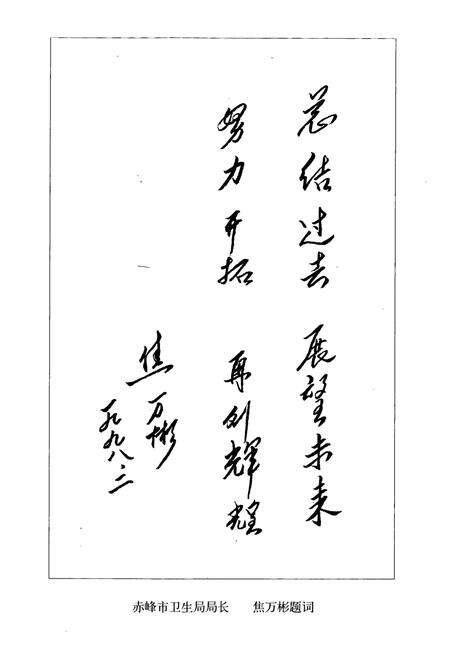 总结过去 展望未来
努力开拓 再创辉煌
焦万彬
一九九八.二
赤峰市卫生局局长 焦万彬题词